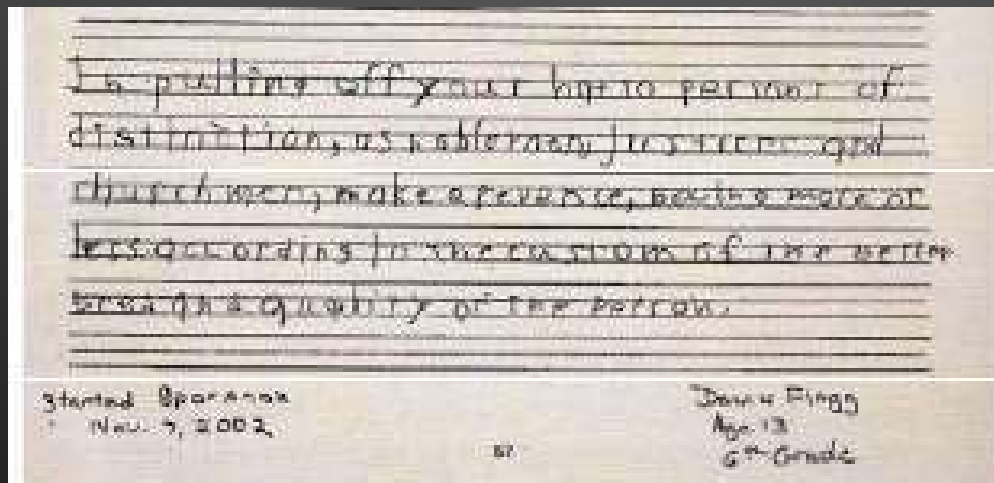 In pulling off your hat to persons of
distinction, as noblemen, justices and
churchmen, make a reverence, bowing more or
less according to the custom of the better
bred and quality of the person.
Started
Nov. 9, 2002
57
Age 13
6th Grade